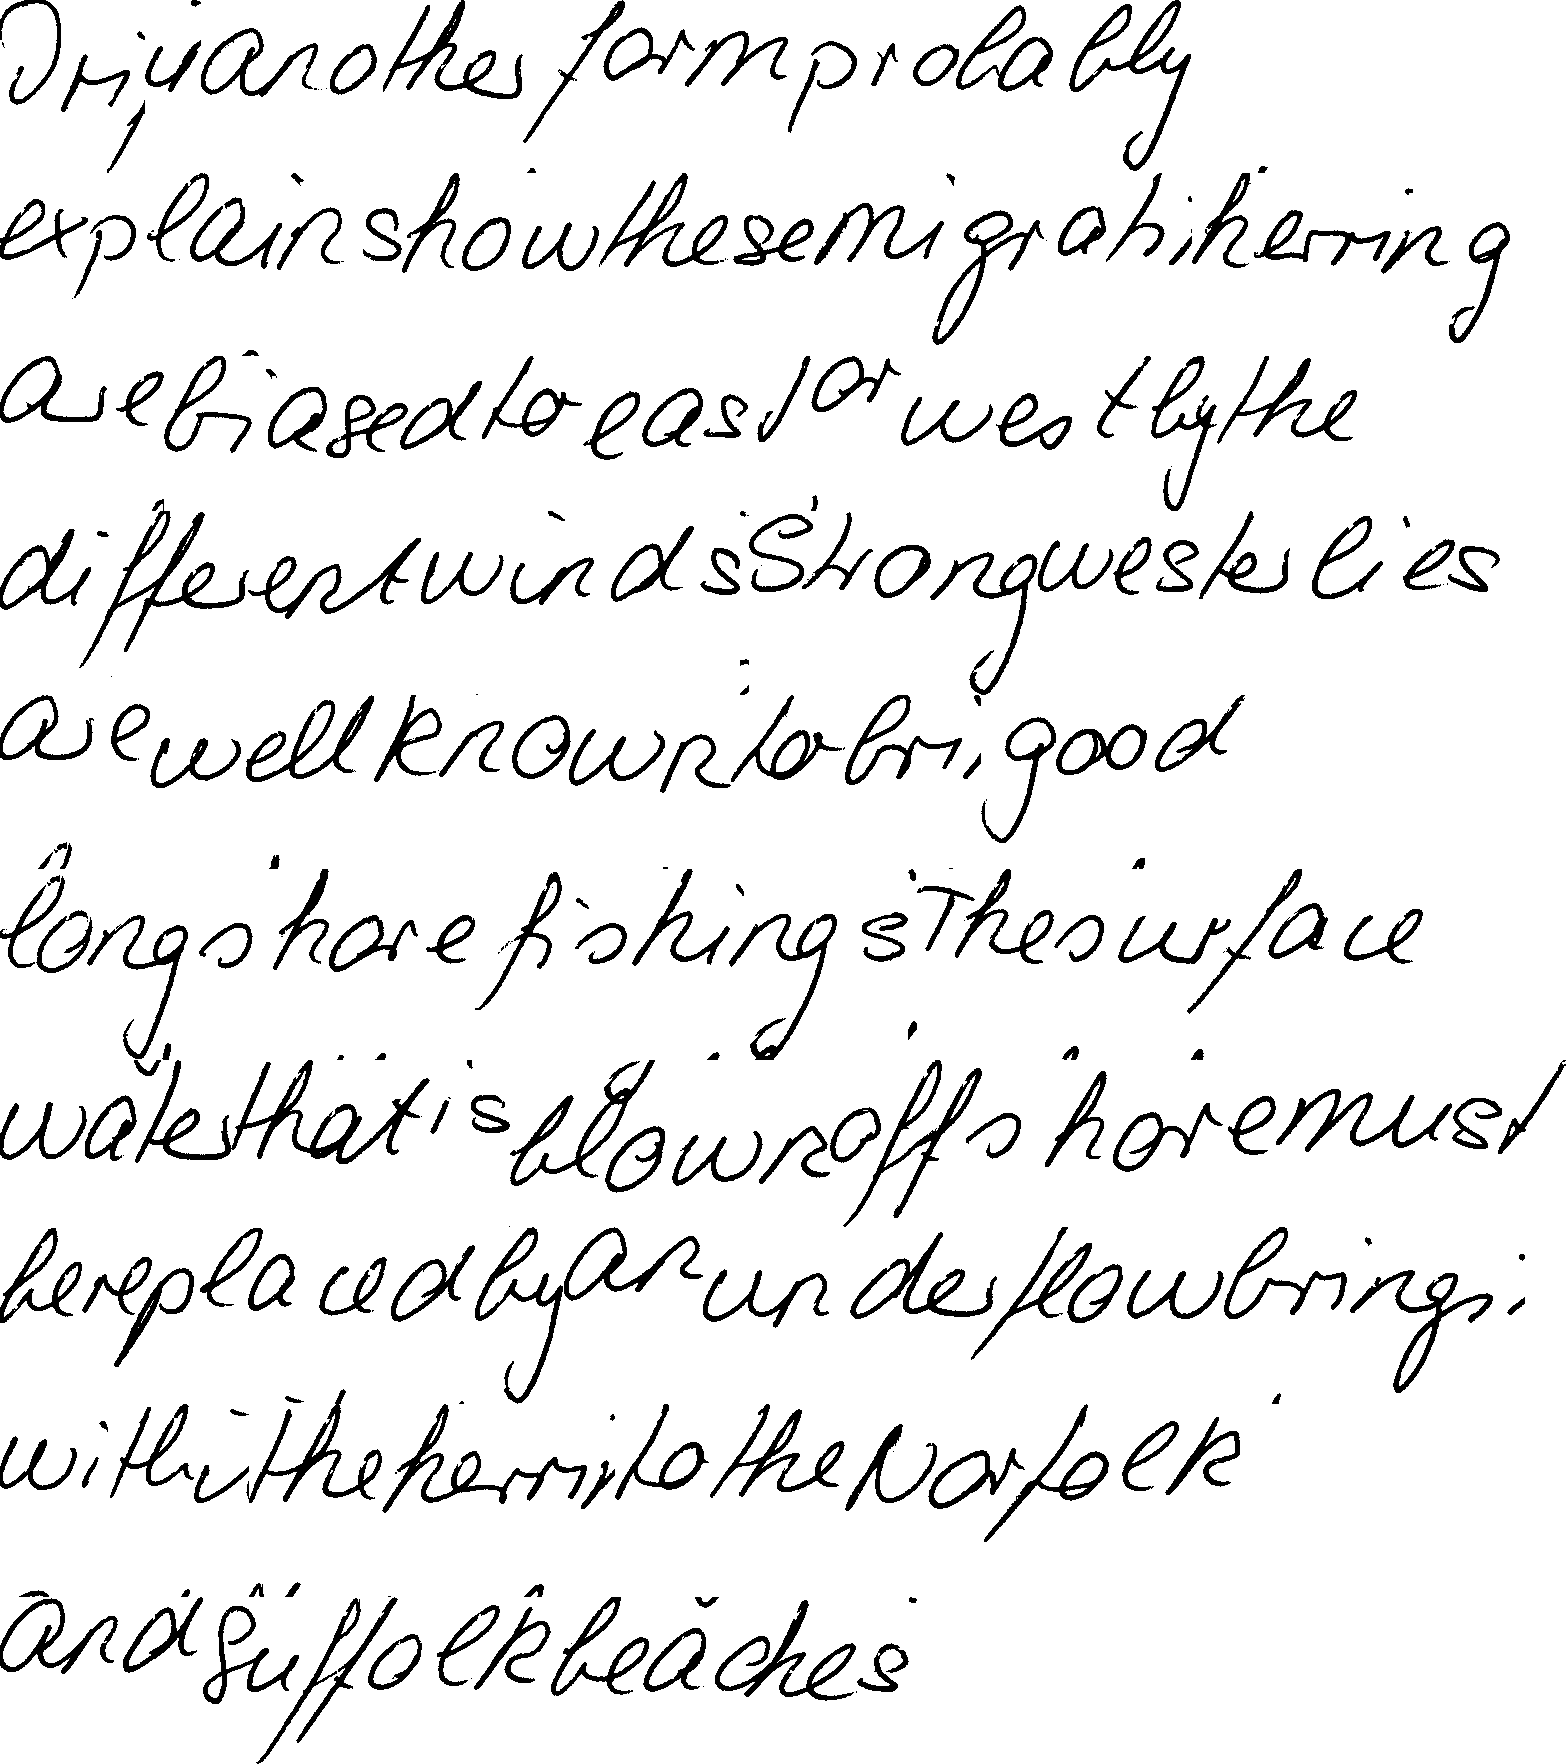 Drift in another form probably
explains how these migrating herring
are biased to east or west by the
different winds Strong westerlies
are well known to bring good
longshore fishings The surface
water that is blown off shore must
be replaced by an underflow brings in
with it the herring to the Norfolk
and Suffolk beaches